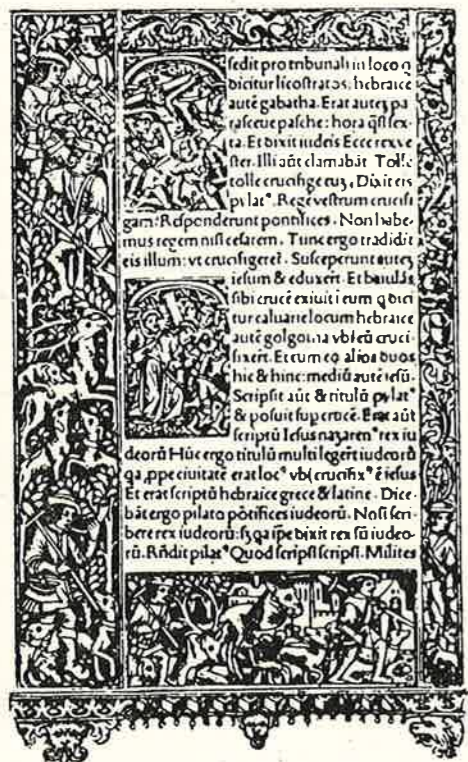 sedit pro tribunali in loco q
dicitur licostratos: hebraice
autē gabatha. Erat autez pa
rasceue pasche: hora q̄si sex-
ta. Et dixit iudeis Ecce rex ve
ster. Illi aūt clamabāt Tolle
tolle crucifige euz, Dixit eis
pylatꝰ. Rege vestrum crucifi
gam: Responderunt pontifices. Non habe-
mus regem nisi cesarem. Tunc ergo tradidit
eis illum: vt crucifigeret. Susceperunt autez
iesum & eduxert. Et baiulās
sibi crucē exiuit i eum q dici
tur caluarie locum hebraice
autē golgotha vbi eū cruci-
fixert. Et cum eo alios duos
hic & hinc: mediū autē iesū.
Scripsit aūt & titulū pylatꝰ
& posuit sup crucē. Erat aūt
scriptū Iesus nazarenꝰ rex iu
deorū Hūc ergo titulū multi legert iudeorū
qa ꝓpe ciuitatē erat locꝰ vbi crucifixꝰ ē iesus
Et erat scriptū hebraice grece & latine. Dice-
bāt ergo pilato pōtifices iudeorū. Noli scri-
bere rex iudeorū: sꝫ qa ipe dixit rex sū iudeo-
rū. Rñdit pilatꝰ Quod scripsi scripsi. Milites